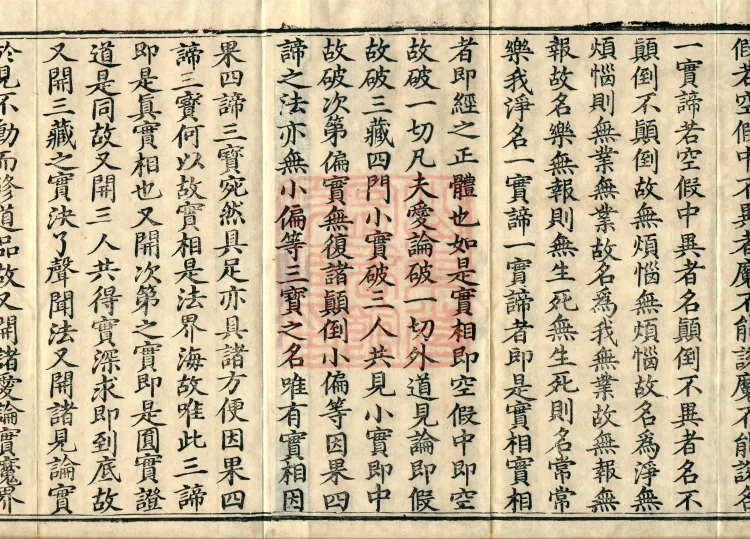 假若空假中不異者魔不能說魔不能說名
一實諦若空假中異者名顛倒不異者名不
顛倒不顛倒故無煩惱無煩惱故名爲淨無
煩惱則無業無業故名爲我無業故無報無
報故名樂無報則無生死無生死則名常常
樂我淨名一實諦一實諦者即是實相實相
者即經之正體也如是實相即空假中即空
故破一切凡夫愛論破一切外道見論即假
故破三藏四門小實破三人共見小實即中
故破次第偏實無復諸顛倒小偏等因果四
諦之法亦無小偏等三寳之名唯有實相因
果四諦三寳宛然具足亦具諸方便因果四
諦三寳何以故實相是法界海故唯此三諦
即是眞實相也又開次第之實即是圓實證
道是同故又開三人共得實深求即到底故
又開三藏之實決了聲聞法又開諸見論實
於見不動而修道品故又開諸愛論實魔界